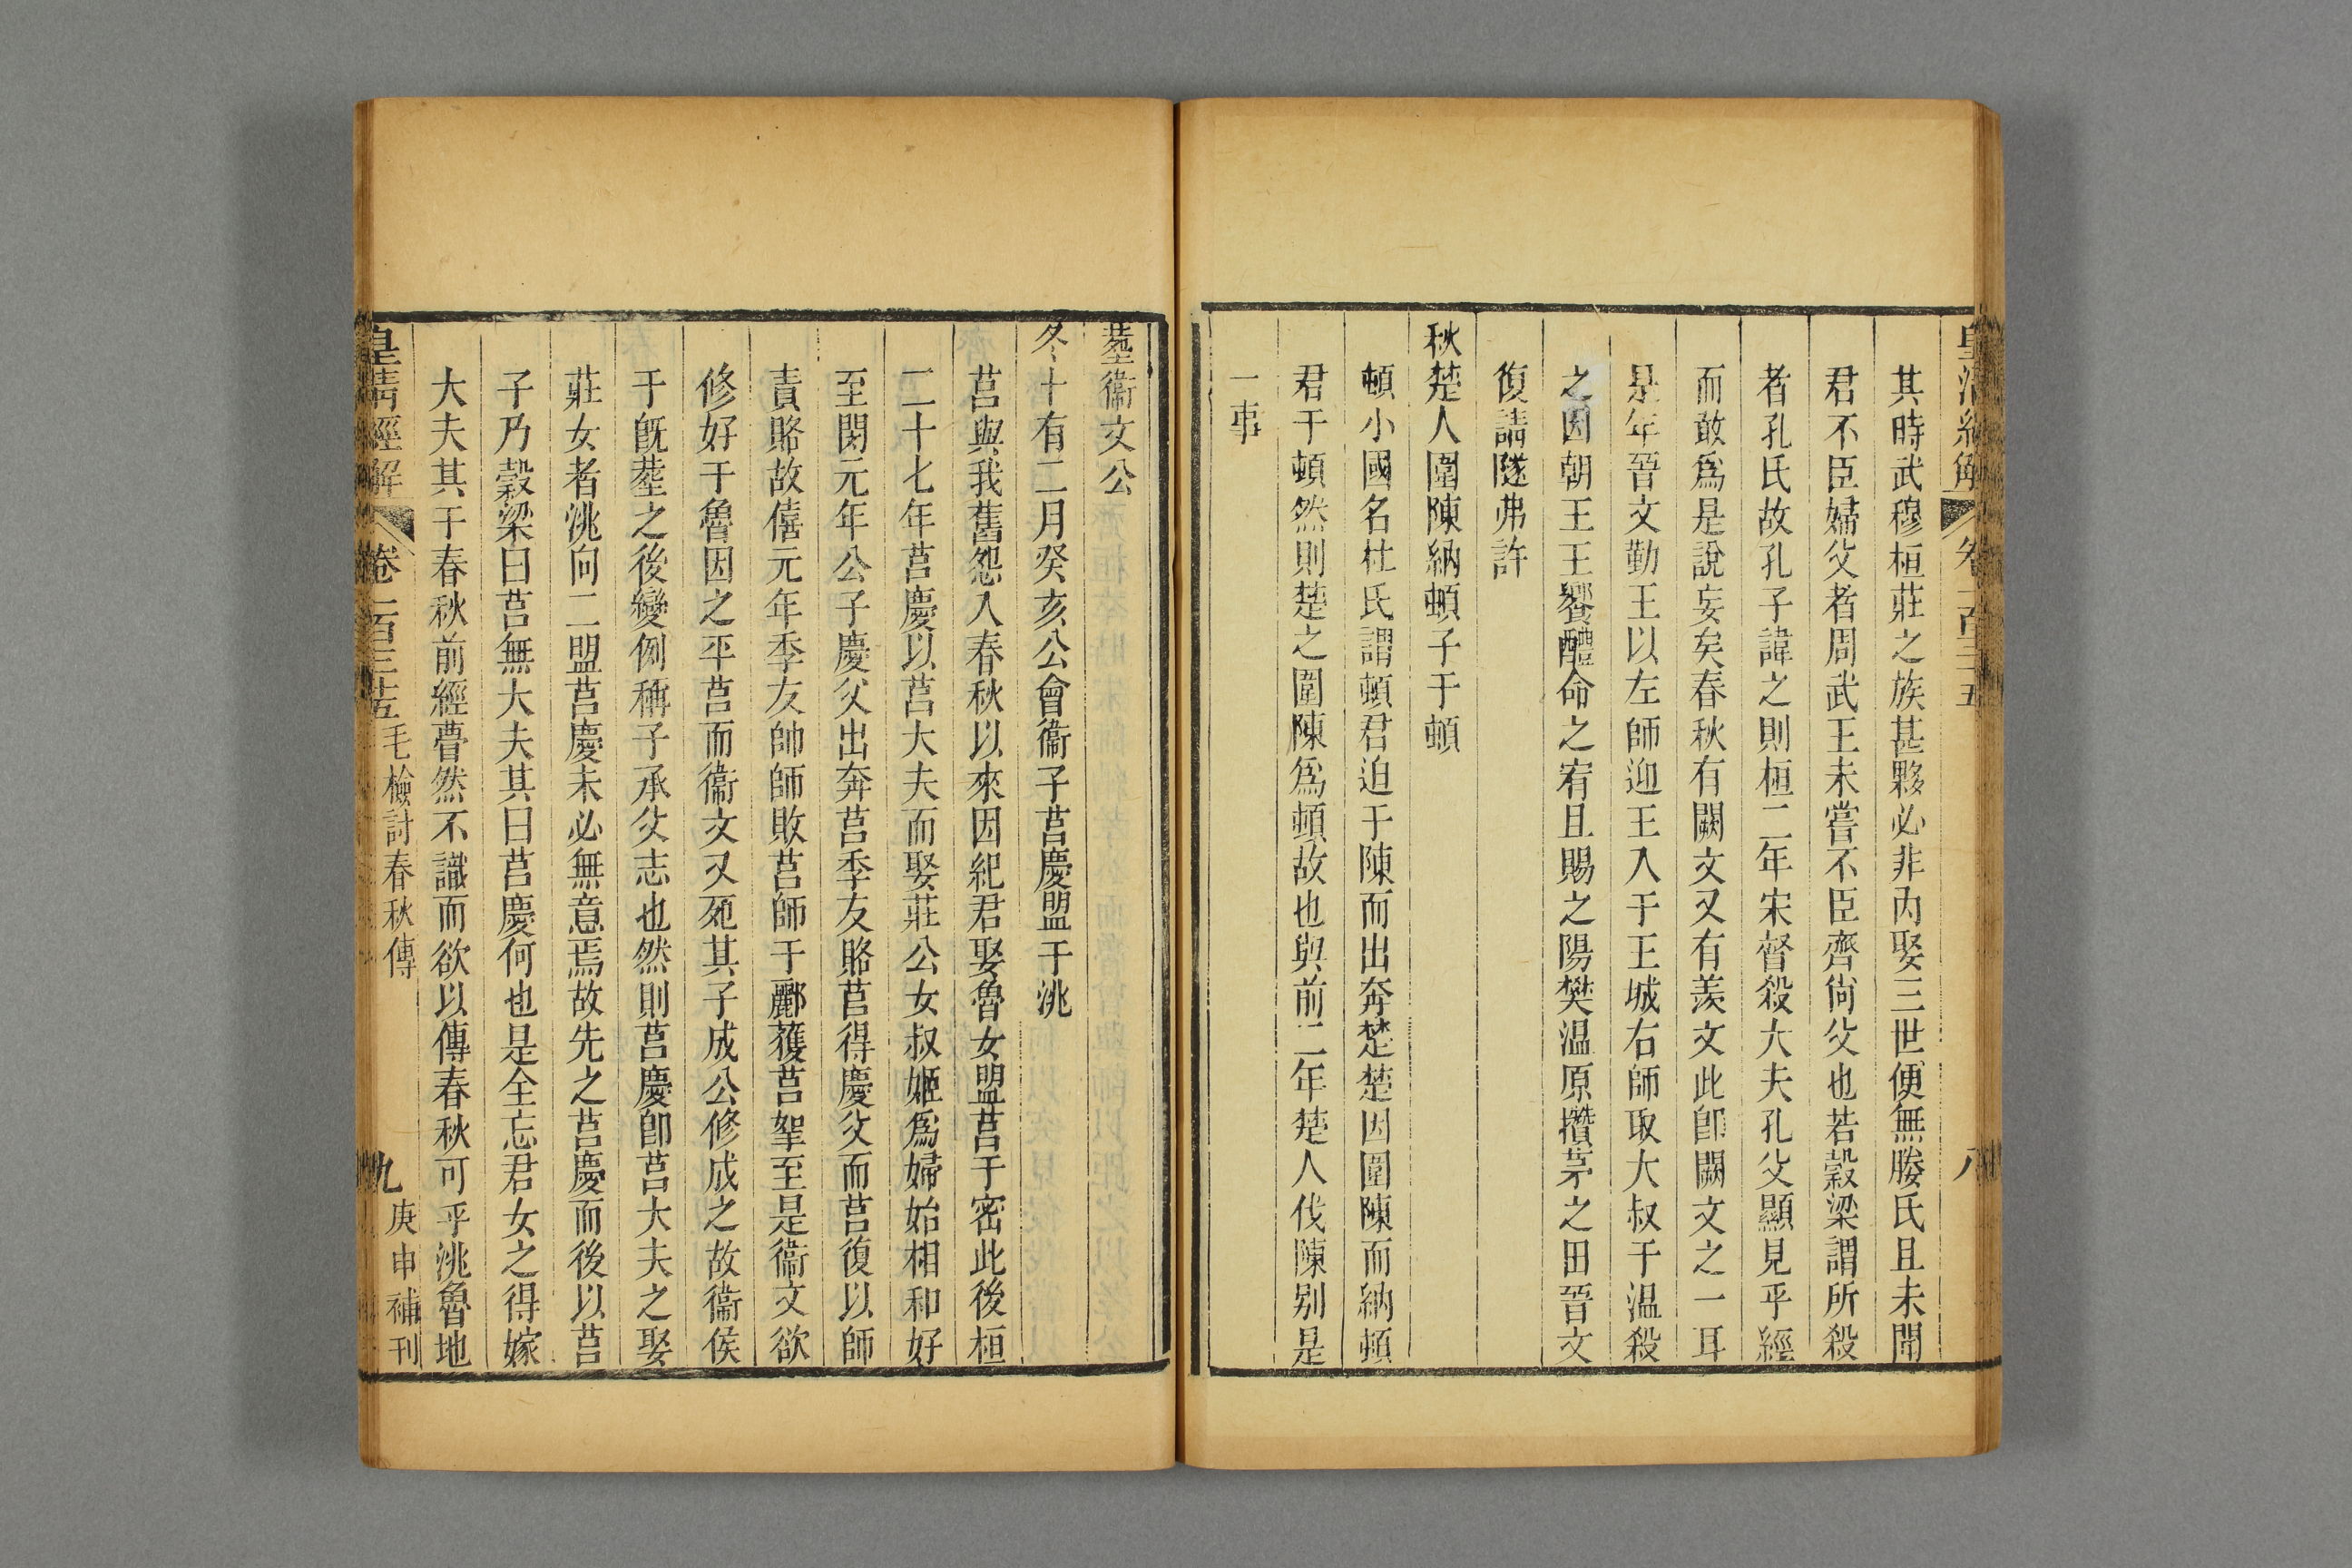 皇清經解
卷一百三十五
八
其時武穆桓莊之族甚夥必非內娶三世便無媵氏且未聞
君不臣婦父者周武王未嘗不臣齊尙父也若穀梁謂所殺
者孔氏故孔子諱之則桓二年宋督殺大夫孔父顯見乎經
而敢爲是說妄矣春秋有闕文又有羨文此卽闕文之一耳
是年晉文勤王以左師迎王入于王城右師取大叔于温殺
之因朝王王饗醴命之宥且賜之陽樊温原攢茅之田晉文
復請隧弗許
秋楚人圍陳納頓子于頓
頓小國名杜氏謂頓君迫于陳而出奔楚楚因圍陳而納頓
君于頓然則楚之圍陳爲頓故也與前二年楚人伐陳别是
一事
葬衞文公
冬十有二月癸亥公會衞子莒慶盟于洮
莒與我舊怨入春秋以來因紀君娶魯女盟莒于密此後桓
二十七年莒慶以莒大夫而娶莊公女叔姬爲婦始相和好
至閔元年公子慶父出奔莒季友賂莒得慶父而莒復以師
責賂故僖元年季友帥師敗莒師于酈獲莒挐至是衞文欲
修好于魯因之平莒而衞文又死其子成公修成之故衞侯
于旣葬之後變例稱子承父志也然則莒慶卽莒大夫之娶
莊女者洮向二盟莒慶未必無意焉故先之莒慶而後以莒
子乃穀梁曰莒無大夫其曰莒慶何也是全忘君女之得嫁
大夫其于春秋前經瞢然不識而欲以傳春秋可乎洮魯地
皇清經解
卷一百三十五
毛檢討春秋傳
九
庚申補刊